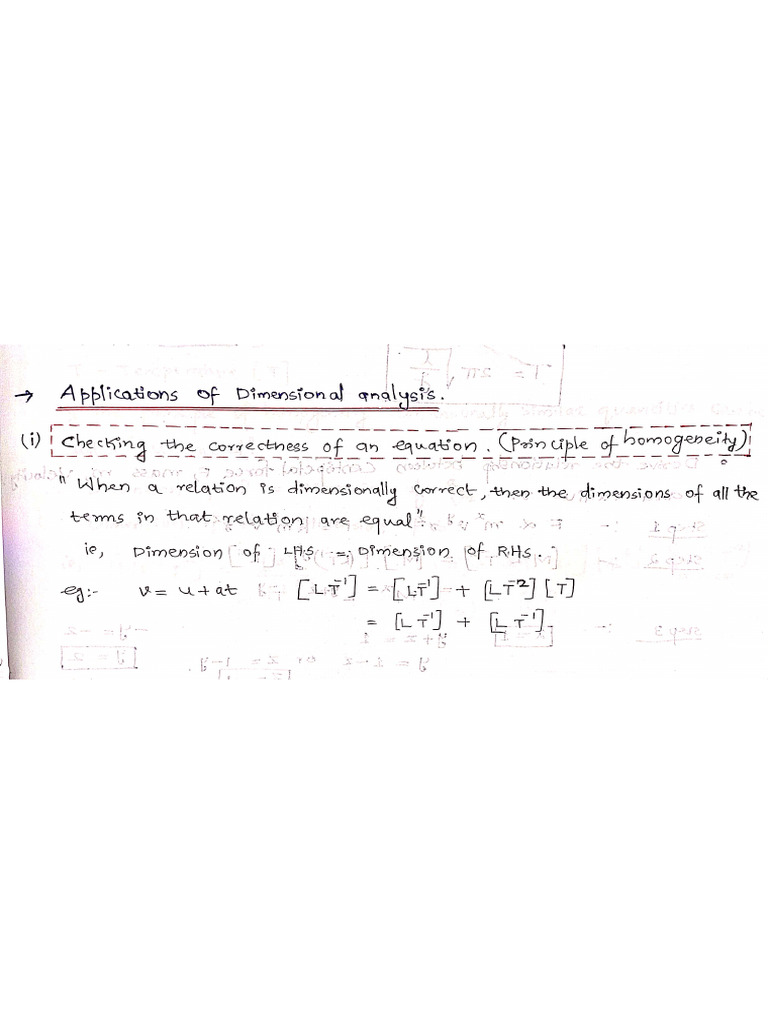 → Applications of Dimensional analysis.
(i) Checking the correctness of an equation. (Principle of homogeneity)
"When a relation is dimensionally correct, then the dimensions of all the
terms in that relation are equal".
ie, Dimension of LHS = Dimension of RHS.
eg:- v = u + at [LT⁻¹] = [LT⁻¹] + [LT⁻²] [T]
= [LT⁻¹] + [LT⁻¹].